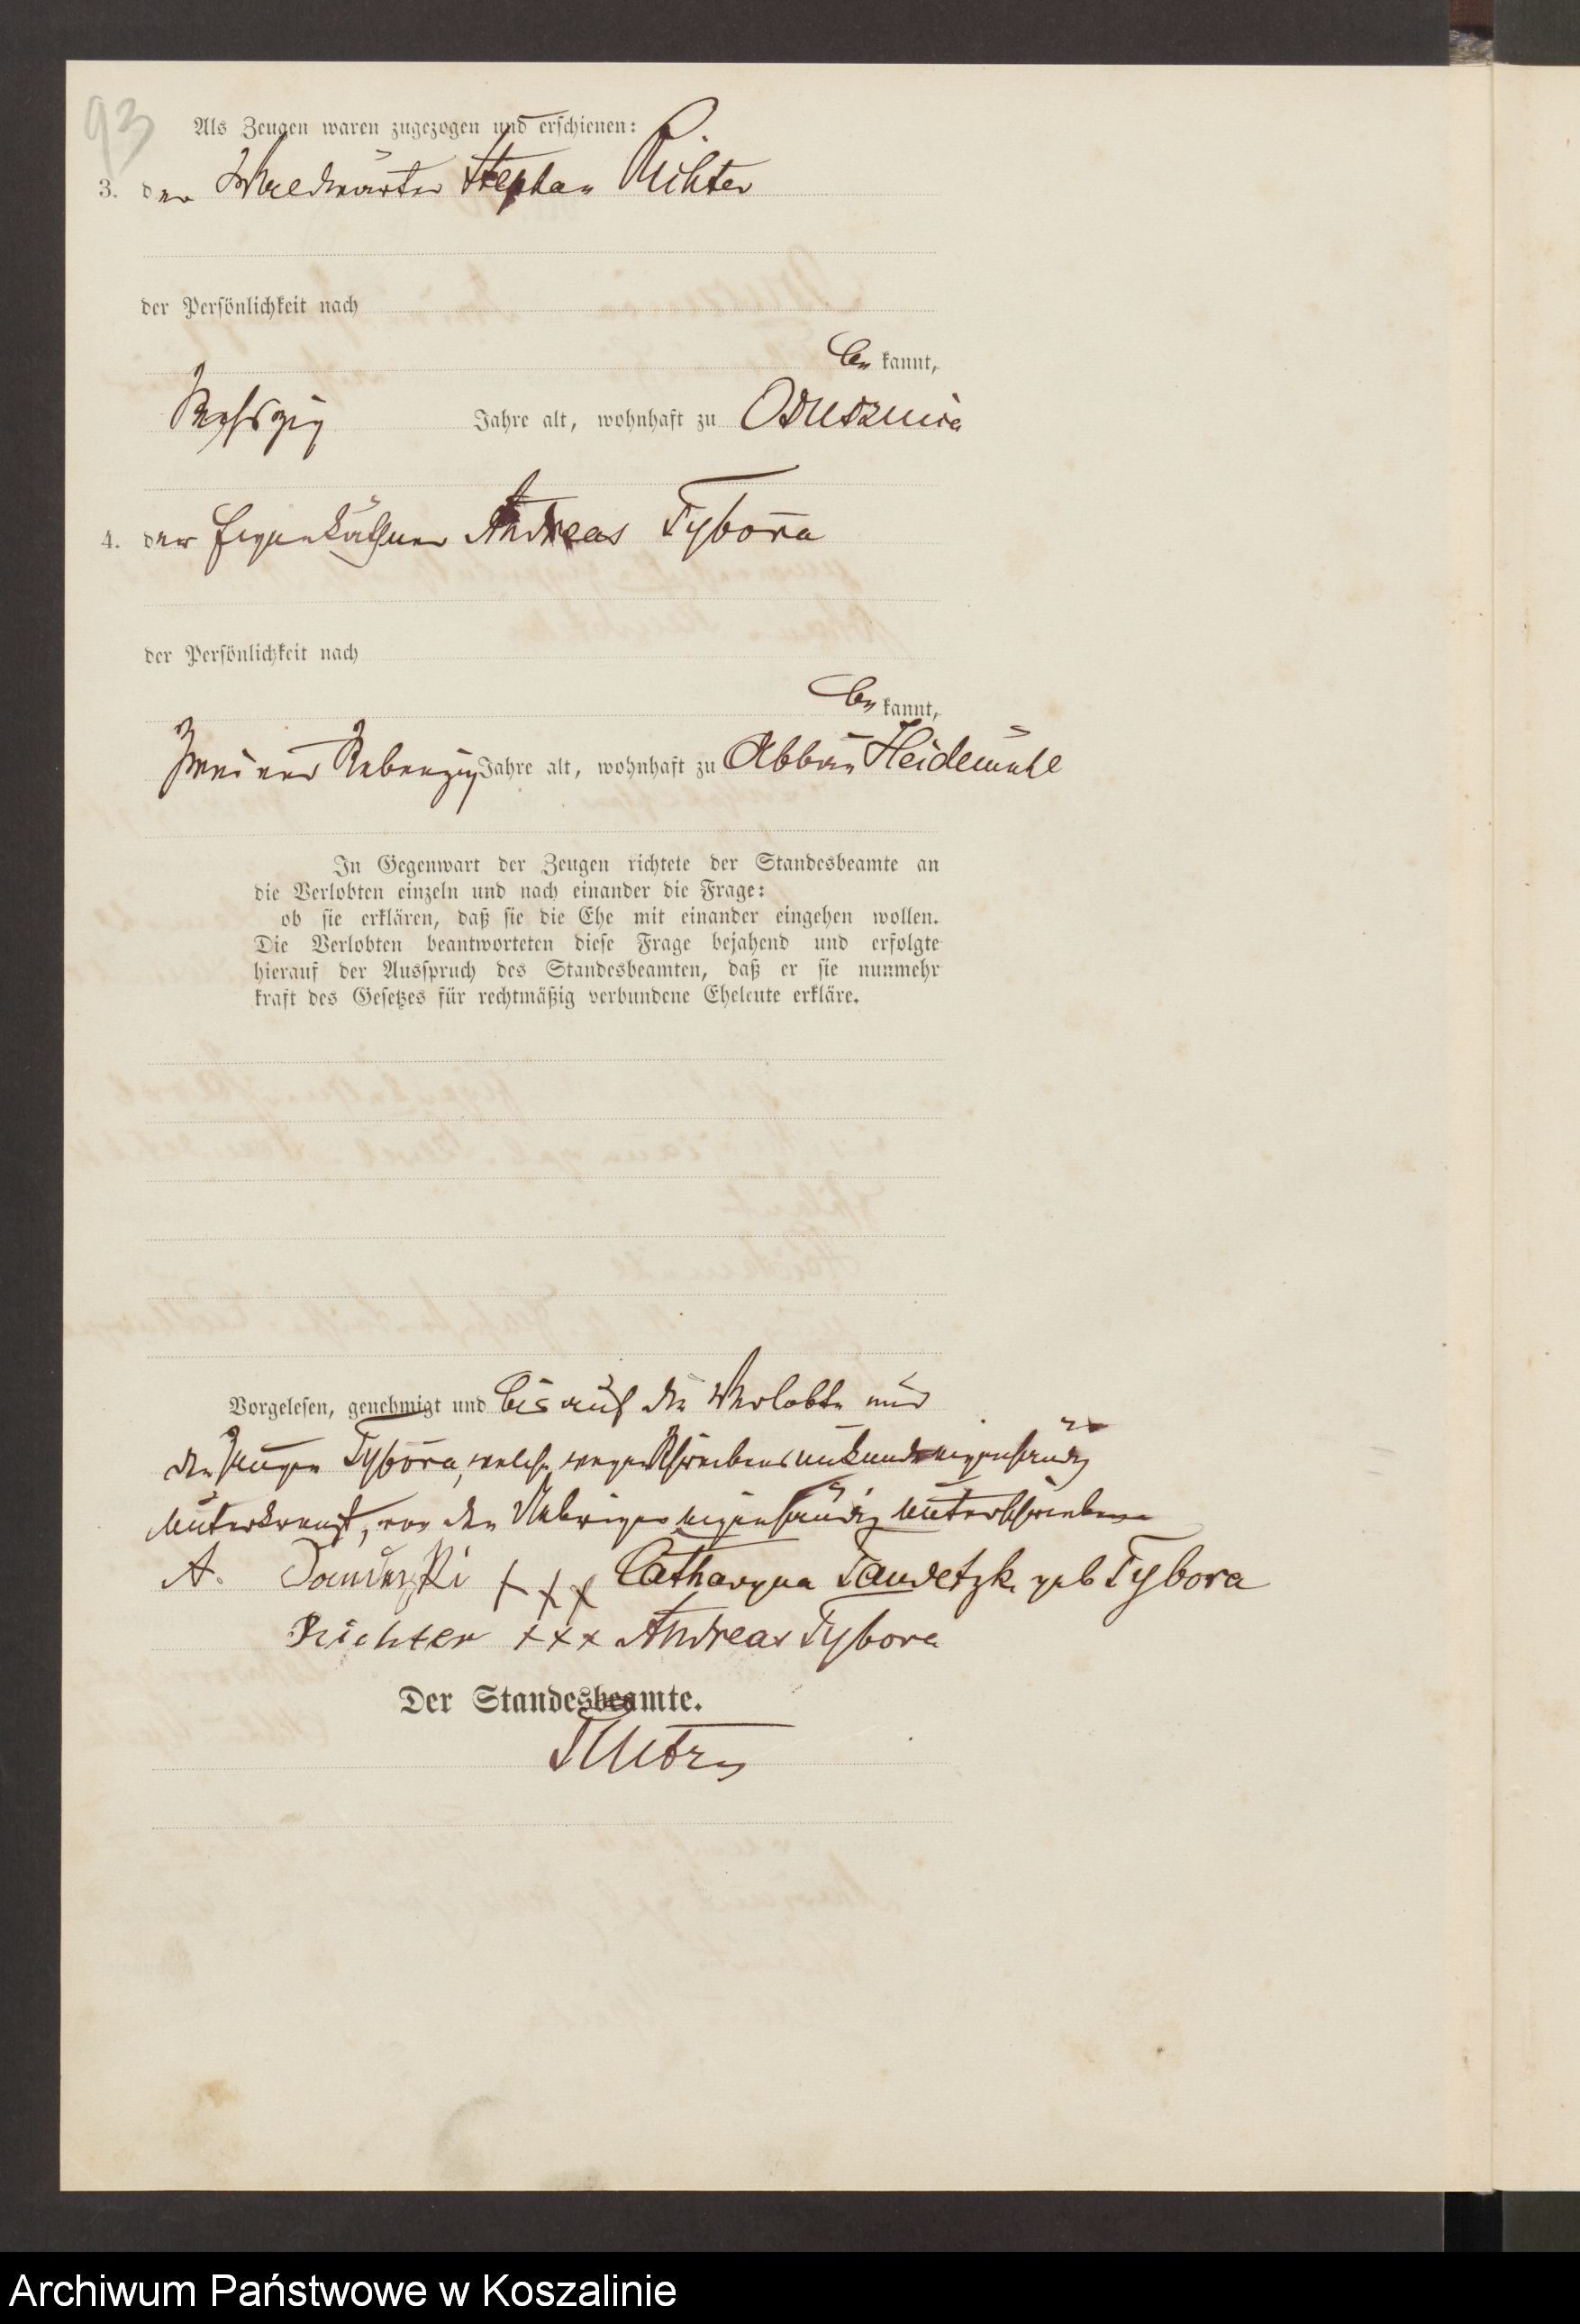 93
Als Zeugen waren zugezogen und erschienen:
3. der Waldwärter Stephan Richter
der Persönlichkeit nach
be kannt,
sechszig Jahre alt, wohnhaft zu Odusznica
4. der Eigenkäthner Andreas Tybora
der Persönlichkeit nach
be kannt,
zwei und siebenzig Jahre alt, wohnhaft zu Abbau Heidemühl
In Gegenwart der Zeugen richtete der Standesbeamte an
die Verlobten einzeln und nach einander die Frage:
ob sie erklären, daß sie die Ehe mit einander eingehen wollen.
Die Verlobten beantworteten diese Frage bejahend und erfolgte
hierauf der Ausspruch des Standesbeamten, daß er sie nunmehr
kraft des Gesetzes für rechtmäßig verbundene Eheleute erkläre.
Vorgelesen, genehmigt und bis auf die Verlobte und
den Zeugen Tybora, welche wegen Schreibensunkunde eigenhändig
unterkreuzt, von den Uebrigen eigenhändig unterschrieben
A. xxx Catharyna geb Tybora
Richter xxx Andreas Tybora
Der Standesbeamte.
Archiwum Państwowe w Koszalinie